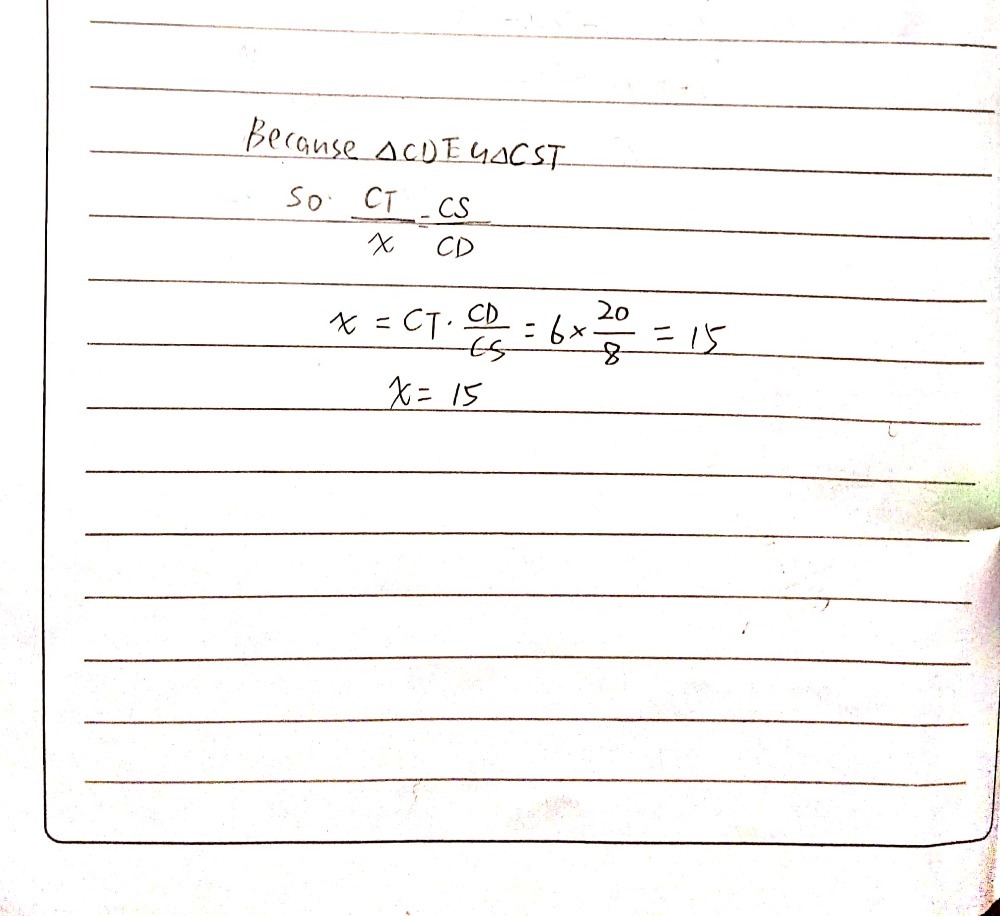 Because △CDE ∽ △CST
So. CT/x = CS/CD
x = CT · CD/CS = 6 × 20/8 = 15
x = 15